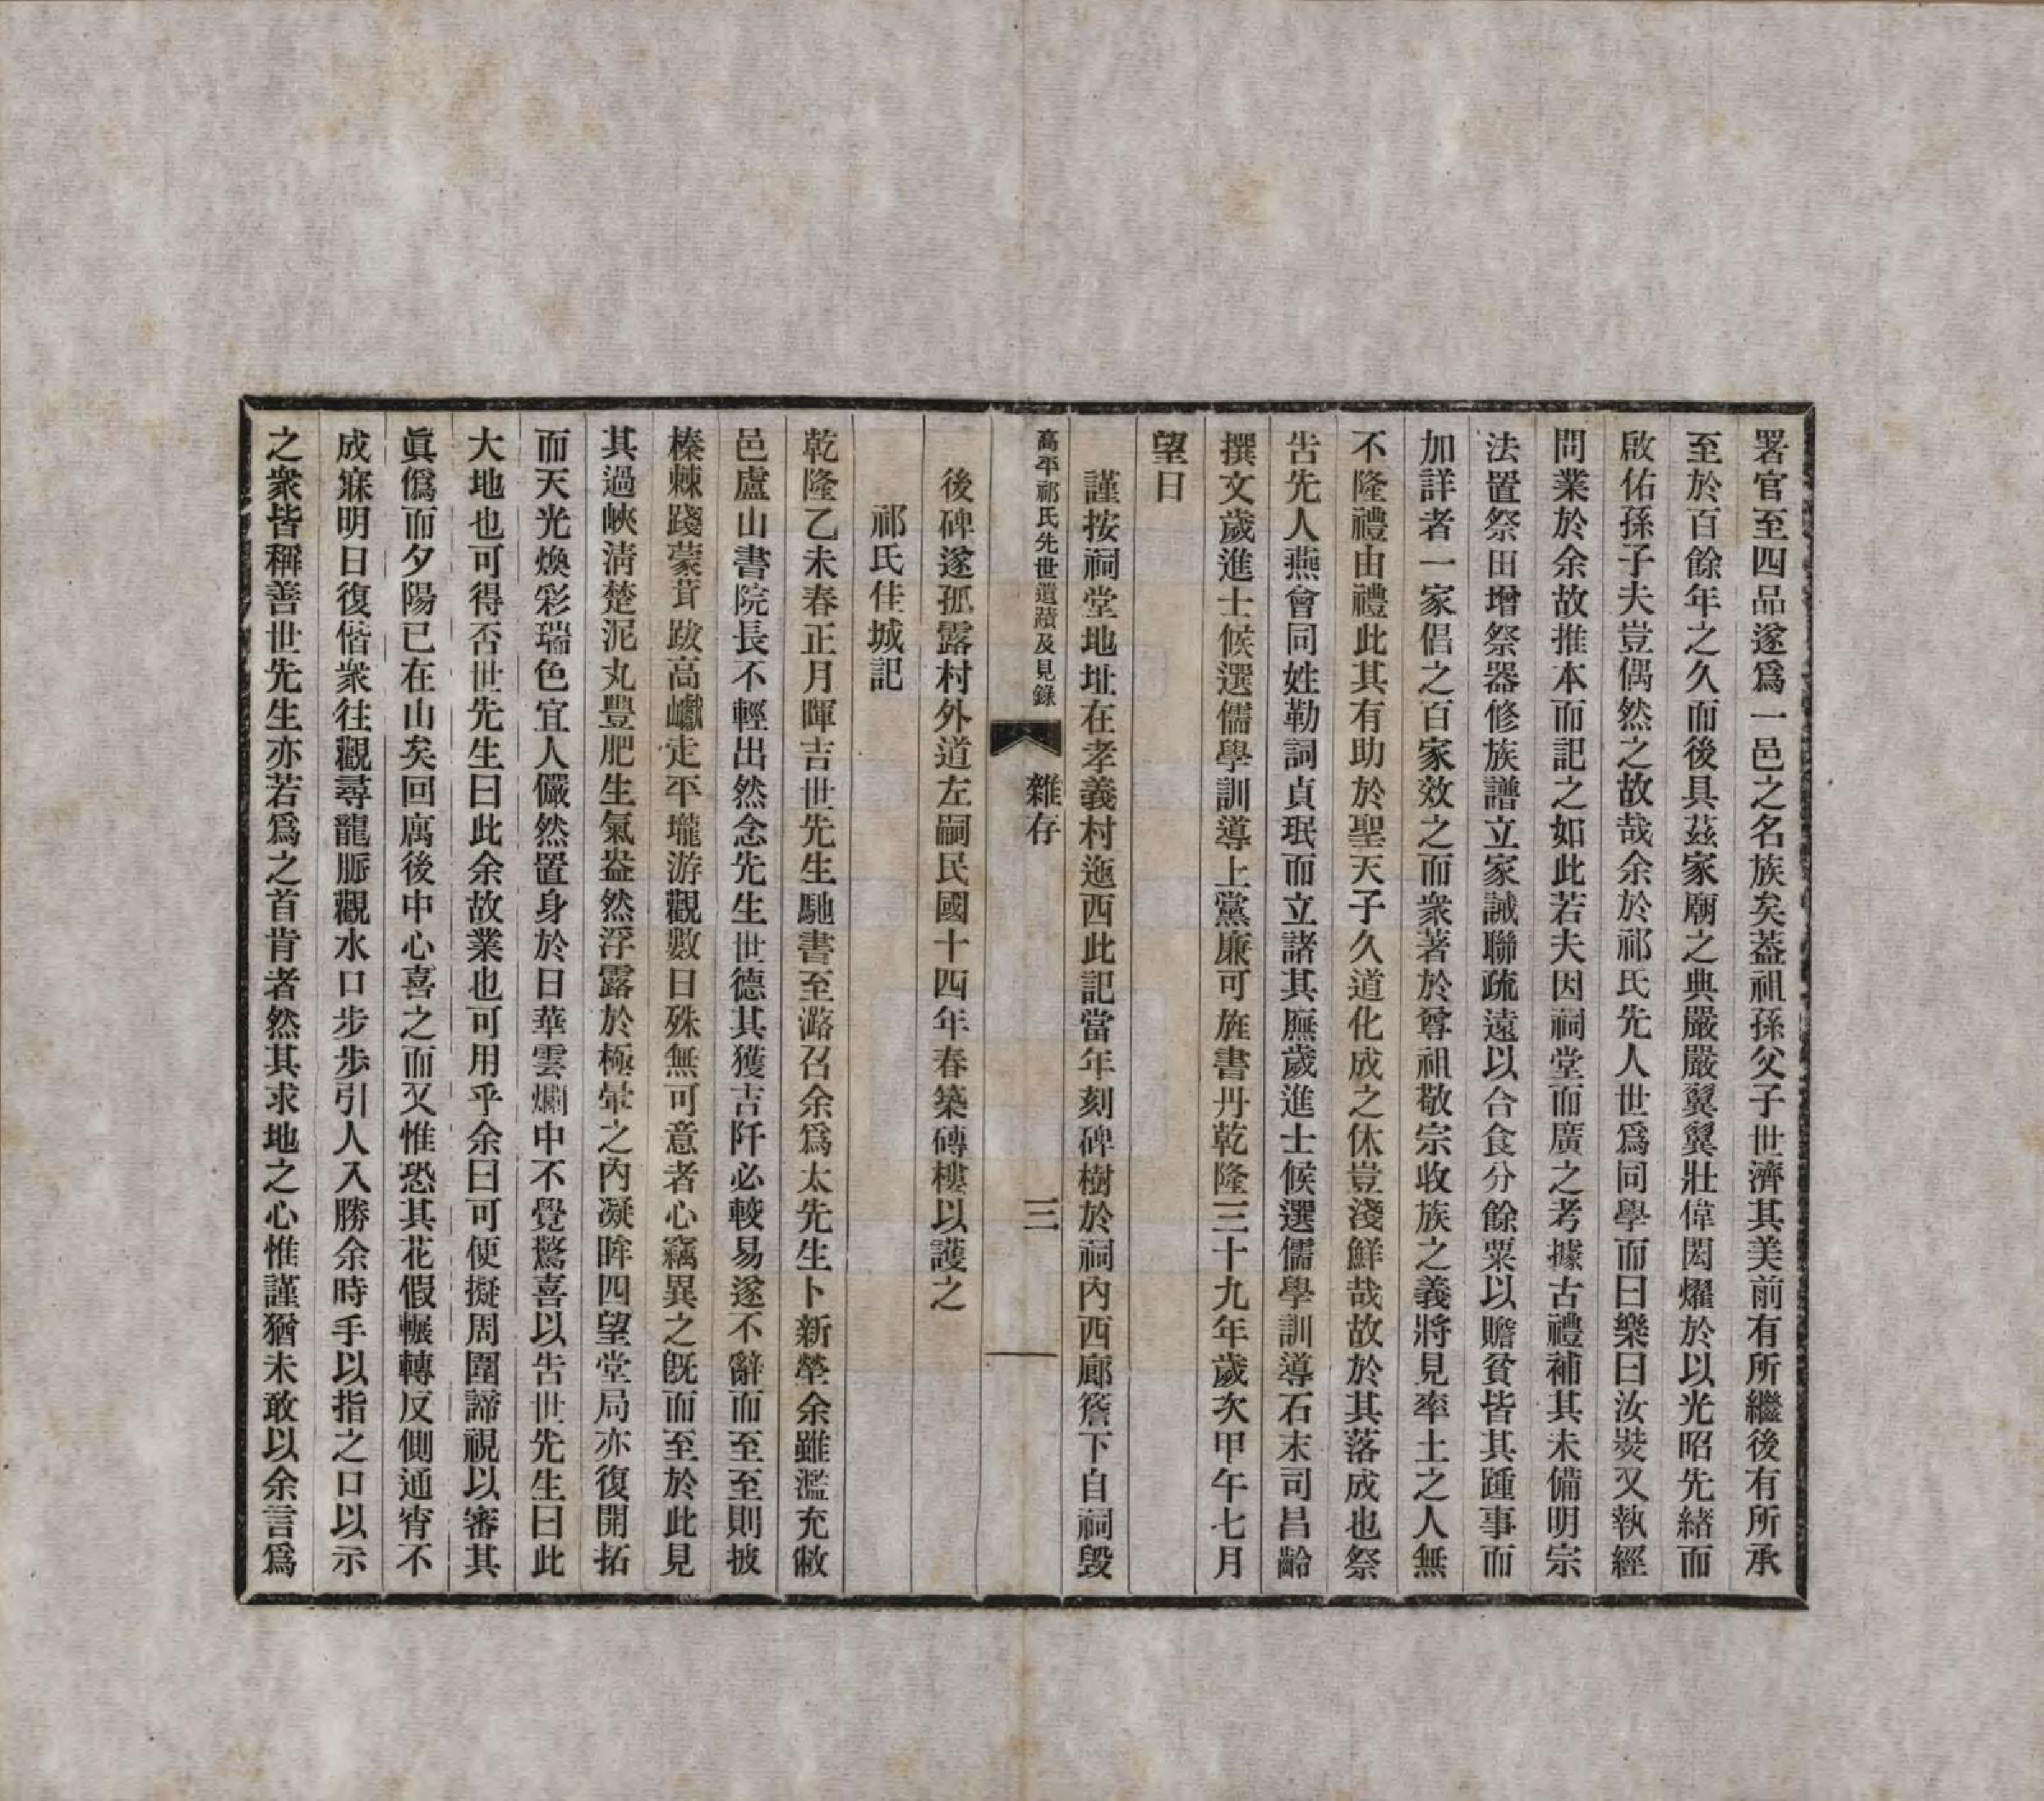 署官至四品遂爲一邑之名族矣葢祖孫父子世濟其美前有所繼後有所承
至於百餘年之久而後具茲家廟之典嚴嚴翼翼壯偉閎燿於以光昭先緒而
啟佑孫子夫豈偶然之故哉余於祁氏先人世爲同學而曰樂曰汝奘又執經
問業於余故推本而記之如此若夫因祠堂而廣之考據古禮補其未備明宗
法置祭田增祭器修族譜立家誡聯疏遠以合食分餘粟以贍貧皆其踵事而
加詳者一家倡之百家效之而衆著於尊祖敬宗收族之義將見率土之人無
不隆禮由禮此其有助於聖天子久道化成之休豈淺鮮哉故於其落成也祭
告先人燕會同姓勒詞貞珉而立諸其廡歲進士候選儒學訓導石末司昌齡
撰文歲進士候選儒學訓導上黨廉可旌書丹乾隆三十九年歲次甲午七月
望日
謹按祠堂地址在孝義村迤西此記當年刻碑樹於祠內西廊簷下自祠毀
高平祁氏先世遺蹟及見錄
雜存
三
後碑遂孤露村外道左嗣民國十四年春築磚樓以護之
祁氏佳城記
乾隆乙未春正月暉吉世先生馳書至潞召余爲太先生卜新塋余雖濫充敝
邑盧山書院長不輕出然念先生世德其獲吉阡必較易遂不辭而至至則披
榛棘踐蒙茸跋高巘走平壠游觀數日殊無可意者心竊異之旣而至於此見
其過峽淸楚泥丸豐肥生氣盎然浮露於極暈之內凝眸四望堂局亦復開拓
而天光煥彩瑞色宜人儼然置身於日華雲爛中不覺驚喜以告世先生曰此
大地也可得否世先生曰此余故業也可用乎余曰可便擬周圍諦視以審其
眞僞而夕陽已在山矣回寓後中心喜之而又惟恐其花假輾轉反側通宵不
成寐明日復偕衆往觀尋龍脈觀水口步步引人入勝余時手以指之口以示
之衆皆稱善世先生亦若爲之首肯者然其求地之心惟謹猶未敢以余言爲